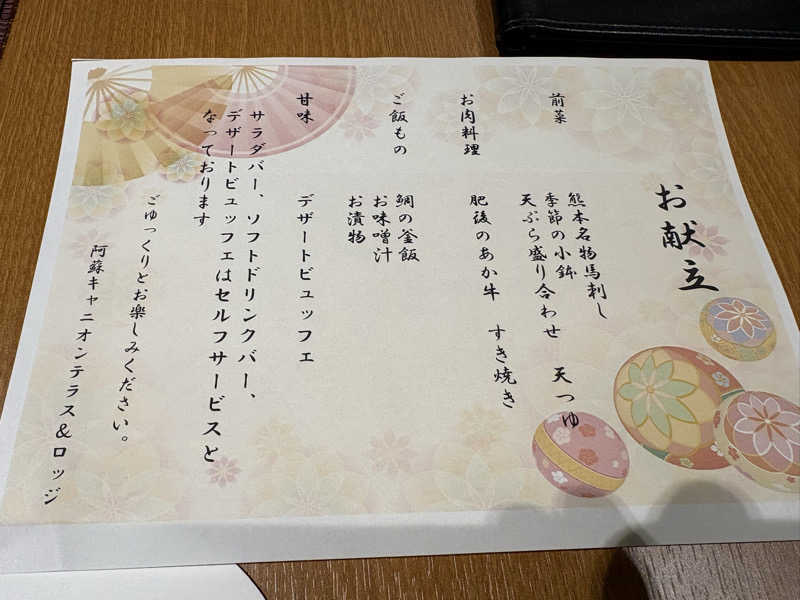 お献立
前菜
熊本名物馬刺し
季節の小鉢
天ぷら盛り合わせ 天つゆ
お肉料理
肥後のあか牛 すき焼き
ご飯もの
鯛の釜飯
お味噌汁
お漬物
甘味
デザートビュッフェ
サラダバー、ソフトドリンクバー、
デザートビュッフェはセルフサービスと
なっております
ごゆっくりとお楽しみください。
阿蘇キャニオンテラス&ロッジ